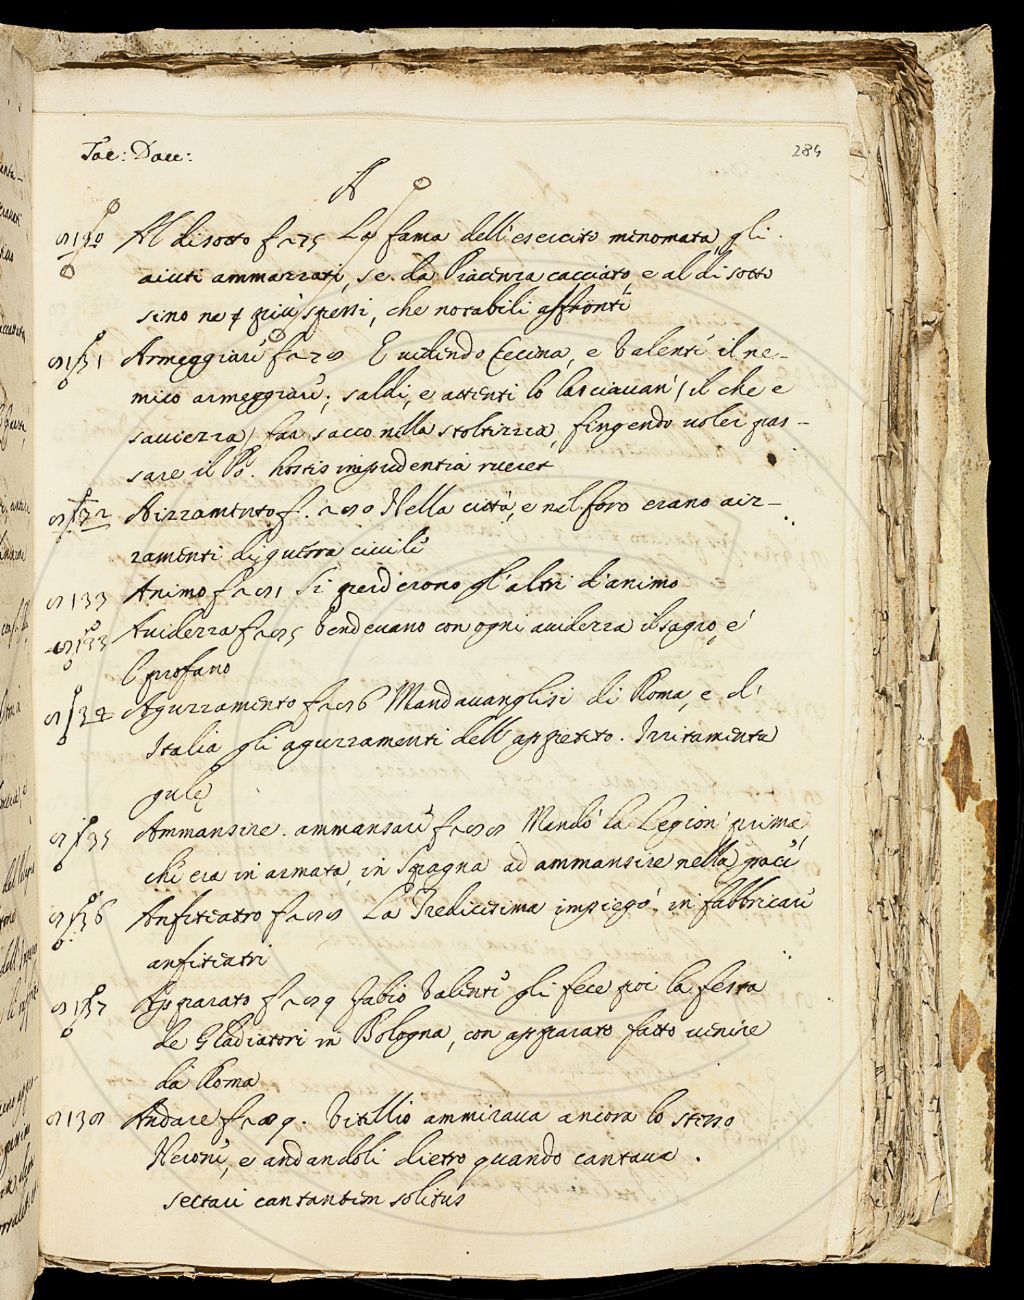 Tac: Dav:
284
A
8130 Al disotto f 275 La fama dell'esercito menomata, gli
aiuti ammazzati, se da Piacenza cacciato e al disotto
sino ne più spessi, che notabili affronti
8131 Armeggiare f 278 E vedendo Cecina, e Valente il ne-
mico armeggiare; saldi, e attenti lo lasciavan' (il che e
saviezza) far sacco nella stoltizia, fingendo voler pas-
sare il Po. hostis imprudentia rueret
8132 Aizzamento f. 280 Nella città, e nel foro erano aiz-
zamenti di guerra civile
8133 Animo f 281 Si perderono gl'altri d'animo
8133 Avidezza f 285 Vendevano con ogni avidezza il sagro, e'
l profano
8134 Aguzzamento f 286 Mandavanglisi di Roma, e d'
Italia gli aguzzamenti dell'appetito. Irritamenta
gulę
8135 Ammansire. ammansare f 288 Mandò la Legion prima
ch'era in armata, in Spagna ad ammansire nella pace
8136 Anfiteatro f 288 La Tredicesima impiegò in fabbricare
anfiteatri
8137 Apparato f 289 Fabio Valente gli fece poi la festa
de Gladiatori in Bologna, con apparato fatto venire
da Roma
8138 Andare f 289. Vitellio ammirava ancora lo stesso
Nerone, e andandoli dietro quando cantava.
sectari cantantem solitus